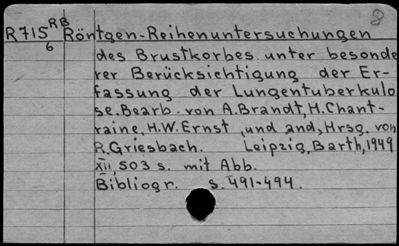 8
R 715 RB Röntgen-Reihenuntersuchungen
6
des Brustkorbes unter besonde
rer Berücksichtigung der Er-
fassung der Lungentuberkulo
se. Bearb. von A. Brandt, H. Chant-
raine, H.W. Ernst und and, Hrsg. von
R. Griesbach. Leipzig, Barth, 1949
XII, 503 s. mit Abb.
Bibliogr. s. 491-494.